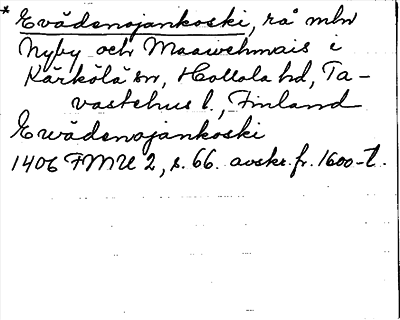 * Evädenojankoski, rå mln
Nyby och Maawehmais i
Kärkölä sn, Hollola hd, Ta-
vastehus l., Finland
Ewädenojankoski
1406 FMU 2, s. 66. avskr. fr. 1600-t.